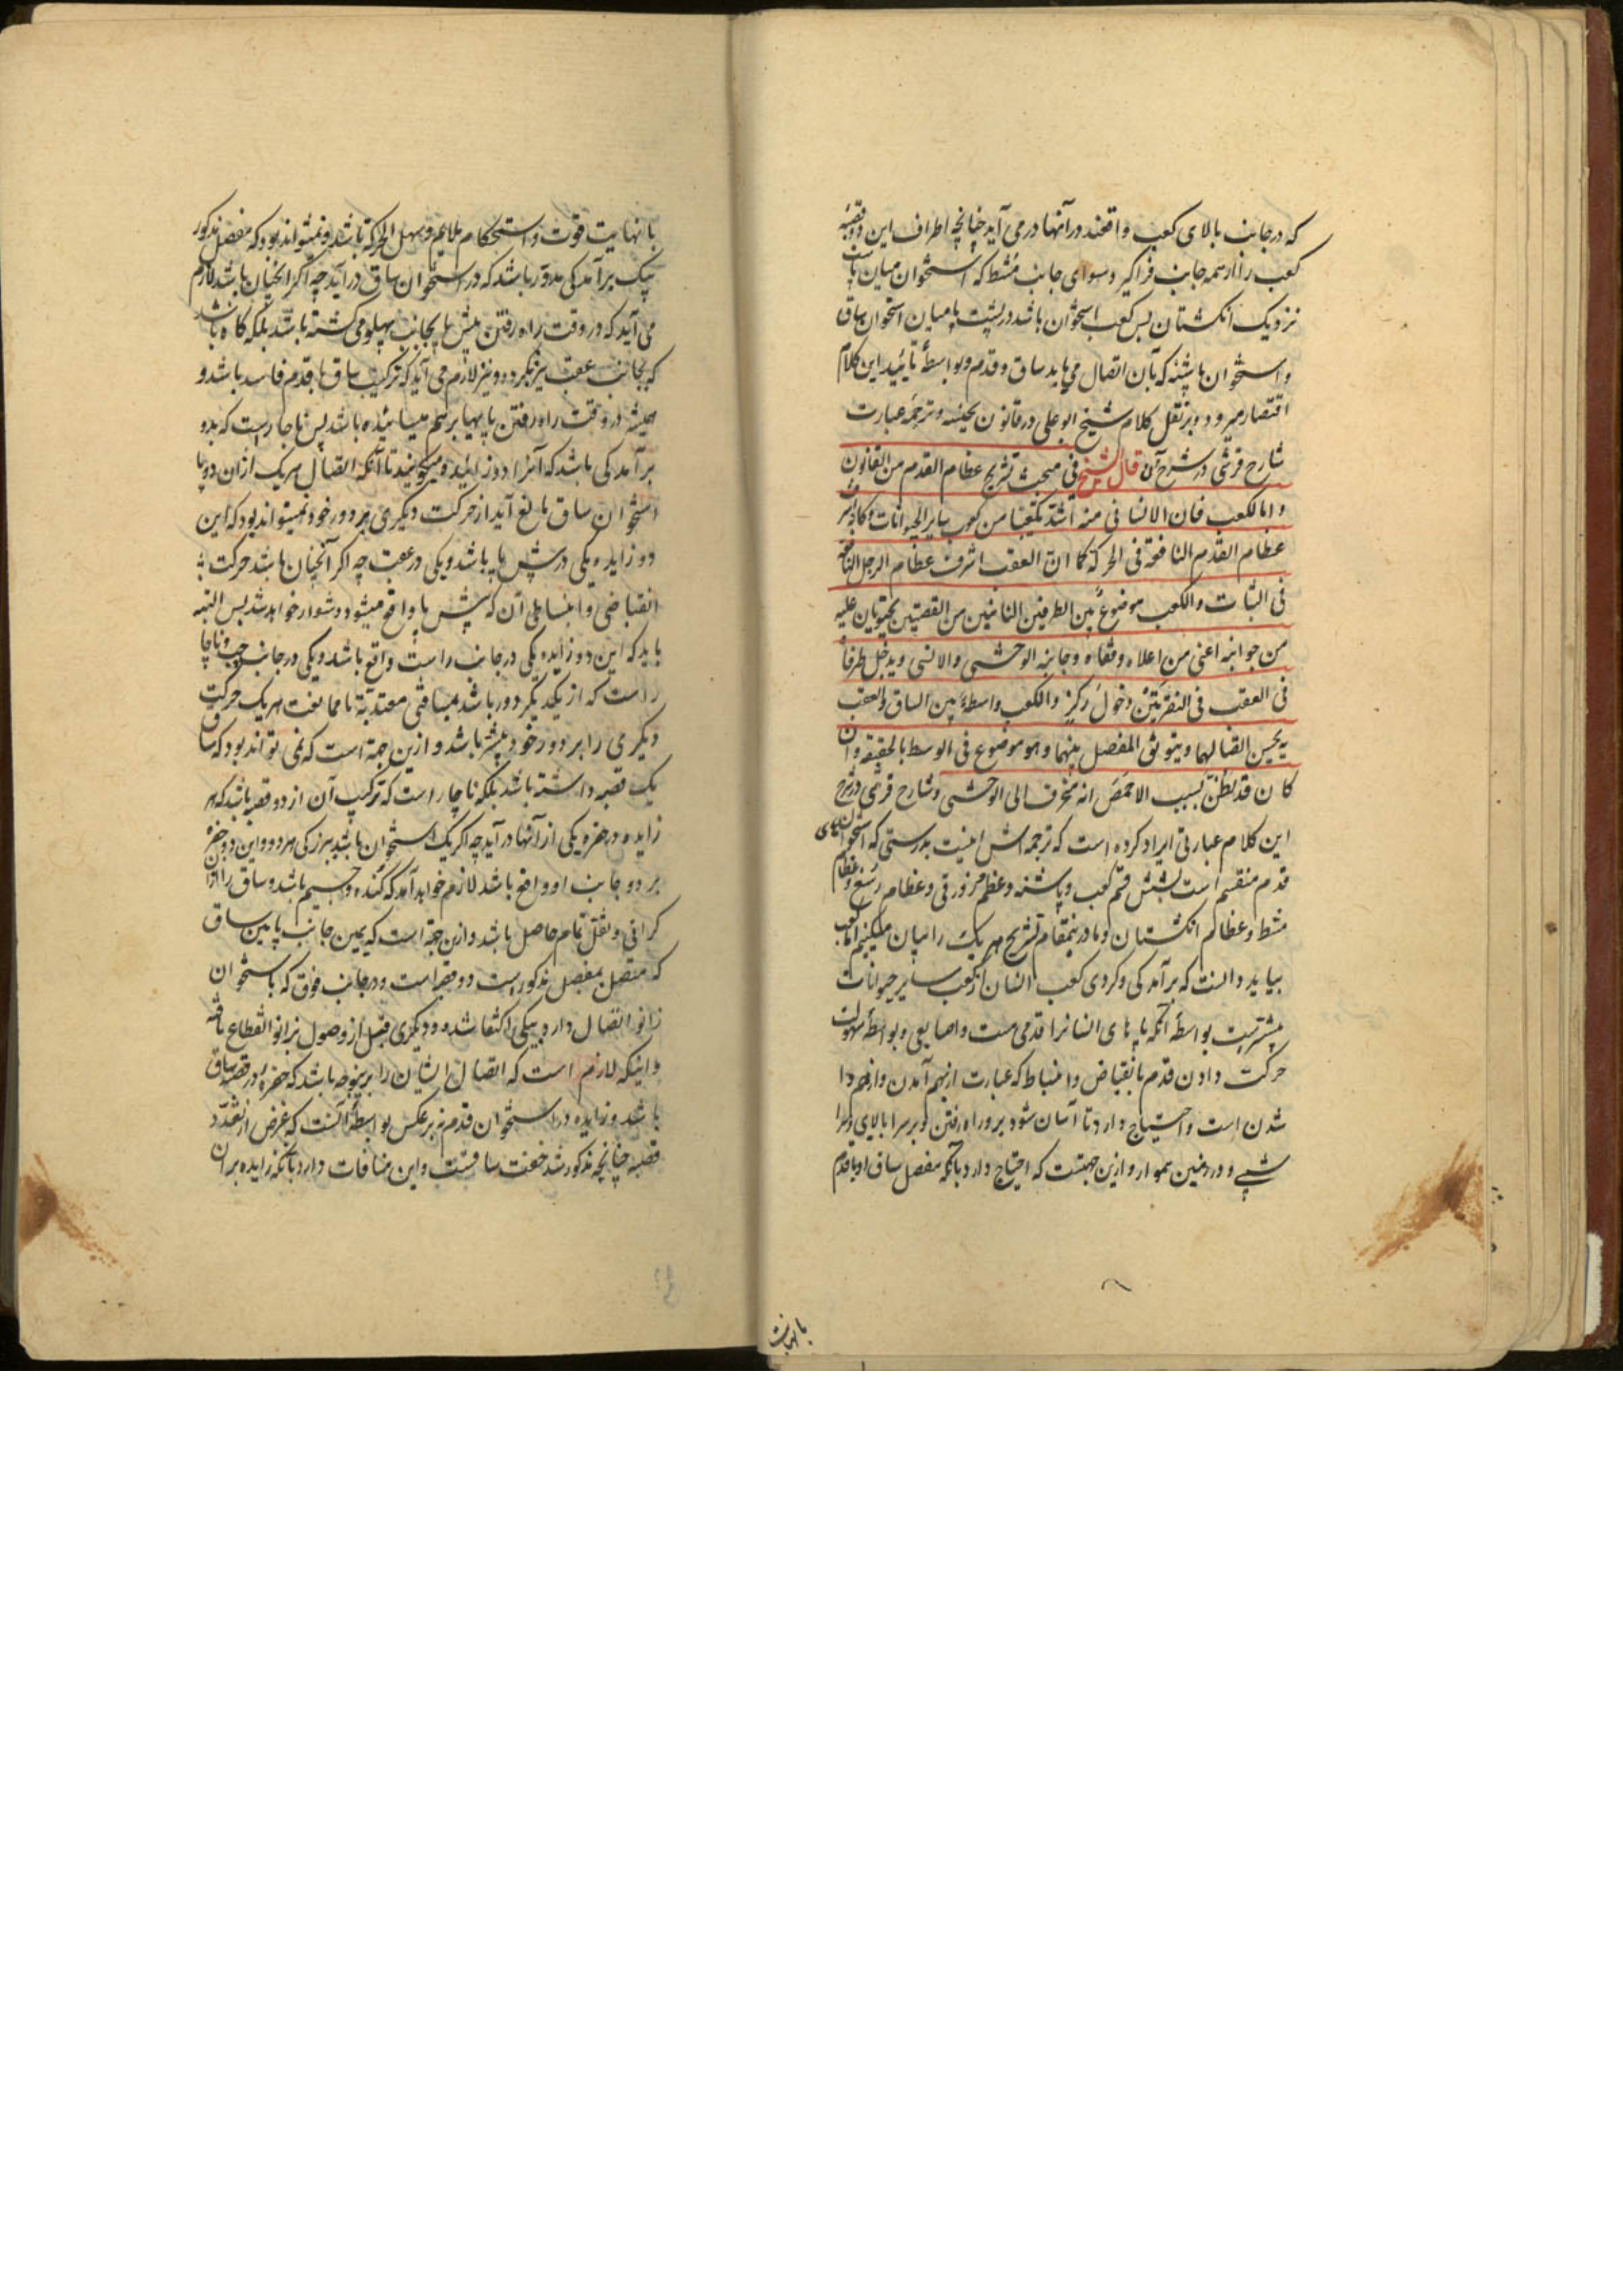 که در جانب بالای کعب واقعند در آنها در می آید چنانچه اطراف این دو قصبه
کعب را از همه جانب فراگیرد سوای جانب مشط که استخوان میان پاست
نزدیک انگشتان پس کعب استخوان باشد در پشت پا میان استخوان ساق
و استخوان پاشنه که بآن اتصال می یابد ساق و قدم و بواسطهٔ تأیید این کلام
اقتصار میرود و بر نقل کلام شیخ ابو علی در قانون بعینه و ترجمه عبارت
شارح قرشی در شرح آن قال الشیخ فی مبحث تشریح عظام القدم من القانون
و اما الکعب فان الانسانی منه اشد تکعیبا من کعوب سایر الحیوانات و کانه اشرف
عظام القدم النافعة فی الحرکة کما ان العقب اشرف عظام الرجل النافعه
فی الثبات والکعب موضوع بین الطرفین الناتیین من القصبتین یحتویان علیه
من جوانبه اعنی من اعلاه وقفاه وجانبه الوحشی والانسی ویدخل طرفاه
فی العقب فی النقرتین دخول رکز والکعب واسطة بین الساق والعقب
به یحسن اتصالهما ویتوثق المفصل بینهما وهو موضوع فی الوسط بالحقیقة وان
کان قد یظن بسبب الاخمص انه منحرف الی الوحشی و شارح قرشی در شرح
این کلام عبارتی ایراد کرده است که ترجمه اش اینست بدرستی که استخوانهای
قدم منقسم است بشش قسم کعب و پاشنه و عظم زورقی و عظام رسغ و عظام
مشط و عظام انگشتان و ما درینمقام تشریح هر یک را بیان میکنیم اما کعب
بباید دانست که برآمدگی و گردی کعب انسان از کعب سایر حیوانات
بیشترست بواسطه آنکه پاهای انسانرا قدمی هست و اصابعی و بواسطهٔ سهولت
حرکت دادن قدم بانقباض و انبساط که عبارت از بهم آمدن و از هم وا
شدن است و احتیاج دارد تا آسان شود برو راه رفتن و بر سرا بالای و سرا
شیبی و در زمین هموار و ازین جهتست که احتیاج دارد بآنکه مفصل ساق او باقدم
بانهایت
با نهایت قوت و استحکام ملایم و سهل الحرکة باشد و نمیتواند بود که مفصل مذکور
بیک برآمدگی مدور باشد که در استخوان ساق درآید چه اگر آنچنان باشد لازم
می آید که در وقت راه رفتن پیش پا بجانب پهلو می گشته باشد بلکه گاه باشد
که بجانب عقب نیز بگردد و نیز لازم می آید که ترکیب ساق با قدم فاسد باشد و
همیشه در وقت راه رفتن پایها بر هم میسائیده باشد پس ناچارست که بدو
برآمدگی باشد که آنرا دو زایده میگویند تا آنکه اتصال هریک ازان دو با
استخوان ساق مانع آید از حرکت دیگری بر دور خود و نمیتواند بود که این
دو زایده یکی در پیش پا باشد و یکی در عقب چه اگر آنچنان باشد حرکت
انقباضی و انبساطی آن که پیش پا واقع میشود دشوار خواهد شد پس البته
باید که این دو زایده یکی در جانب راست واقع باشد و یکی در جانب چپ و ناچار
است که از یکدیگر دور باشد بمسافتی معتدبه تا ممانعت هریک حرکت
دیگری را بر دور خود بیشتر باشد و ازین جهة است که نمی تواند بود که ساق
یک قصبه داشته باشد بلکه ناچار است که ترکیب آن از دو قصبه باشد که هر
زایده در حفره یکی از آنها درآید چه اگر یک استخوان باشد ببزرگی هر دو و این دو حفره
بر دو جانب او واقع باشد لازم خواهد آمد که گنده و جسیم باشد و ساق را ازان
گرانی و ثقل تمام حاصل باشد و ازین جهة است که بهمین جانب پایین ساق
که متصل بمفصل مذکور است دو قصبه است و در جانب فوق که باستخوان
زانو اتصال دارد بیکی اکتفا شده و دیگری قبل از وصول بزانو انقطاع یافته
و اینکه لازم است که اتصال ایشان را برینوجه باشد که حفره در قصبه ساق
باشد و زایده در استخوان قدم نه برعکس بواسطهٔ آنست که غرض از تعدد
قصبه چنانچه مذکور شد خفت ساقست و این منافات دارد بآنکه زایده بر آن